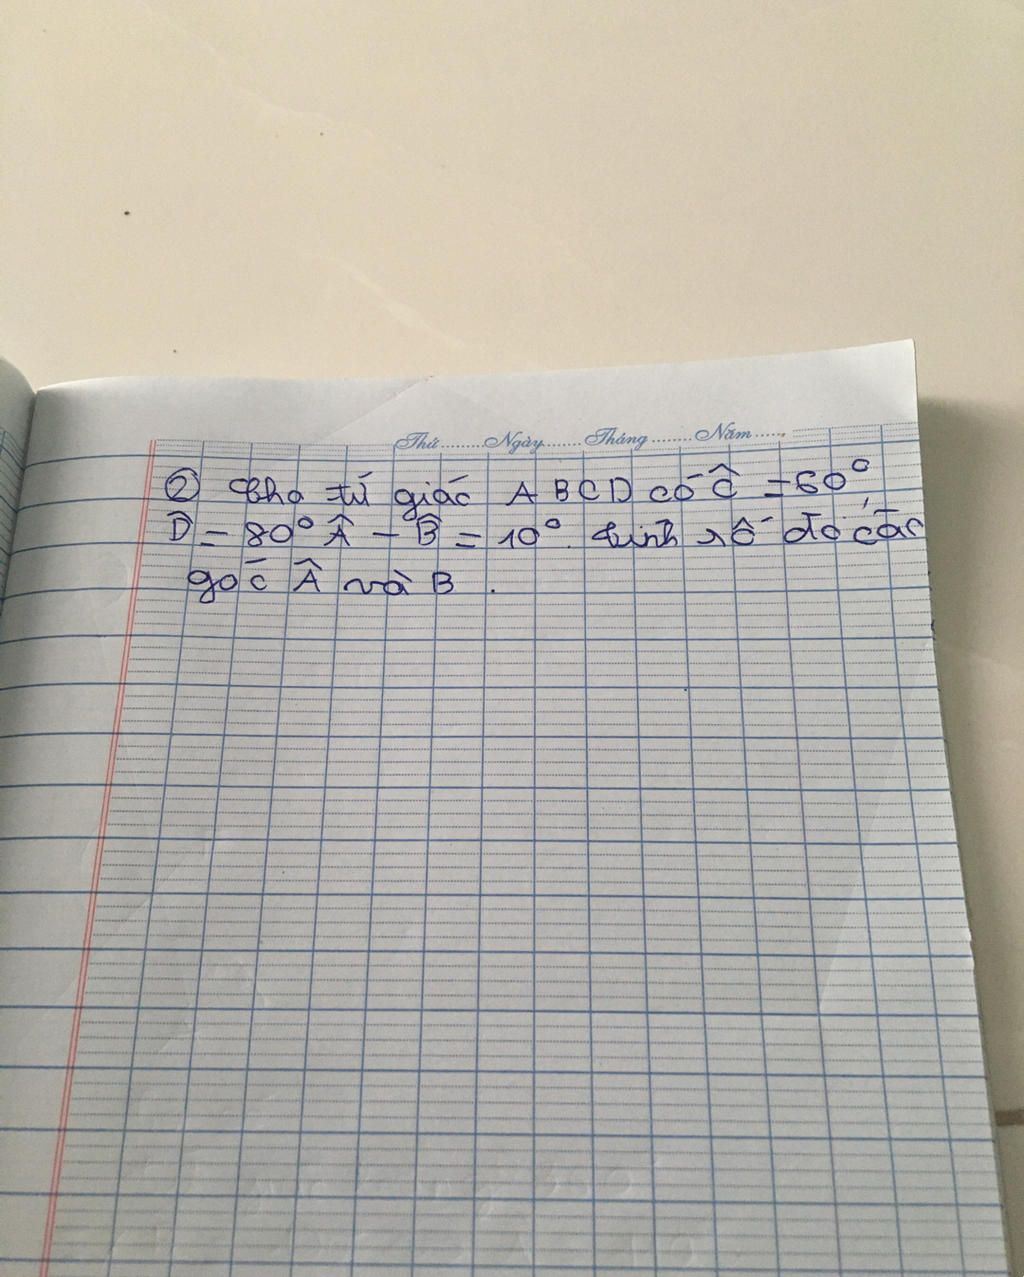 Thứ........Ngày.......Tháng........Năm......
② Cho tứ giác ABCD có Ĉ = 60°
D̂ = 80° Â - B̂ = 10°. tính số đo các
góc Â và B .